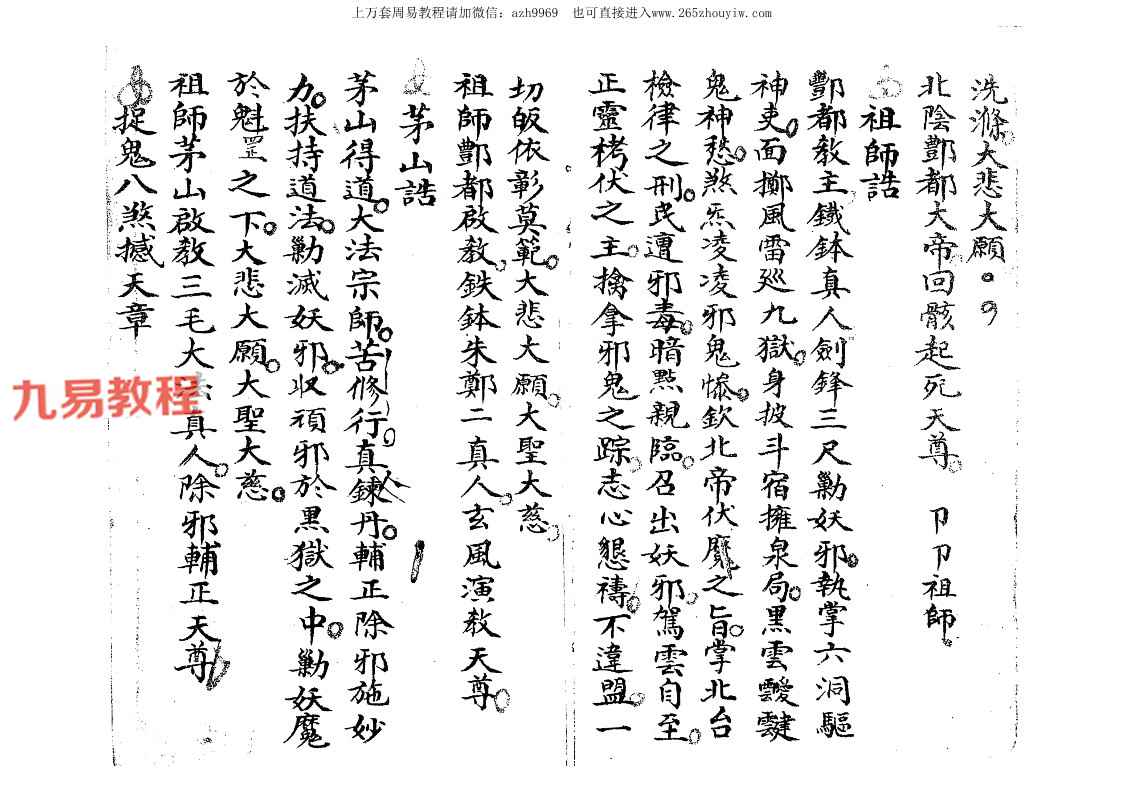 上万套周易教程请加微信：azh9969　也可直接进入www.265zhouyiw.com
洗滌大悲大願
北陰酆都大帝回骸起死天尊　卩卩祖師
祖師誥
酆都教主鐵鉢真人劍鋒三尺勦妖邪執掌六洞驅
神吏面擲風雷巡九獄身披斗宿擁泉局黑雲靉靆
鬼神愁煞炁凌凌邪鬼慘欽北帝伏魔之旨掌北台
檢律之刑民遭邪毒暗點親臨召出妖邪駕雲自至
正靈栲伏之主擒拿邪鬼之踪志心懇禱不違盟一
切皈依彰莫範大悲大願大聖大慈
祖師酆都啟教鉄鉢朱鄭二真人玄風演教天尊
茅山誥
茅山得道大法宗師苦修行真鍊丹輔正除邪施妙
力扶持道法勦滅妖邪収頑邪於黑獄之中勦妖魔
於魁罡之下大悲大願大聖大慈
祖師茅山啟教三毛大法真人除邪輔正天尊
捉鬼八煞撼天章
九易教程